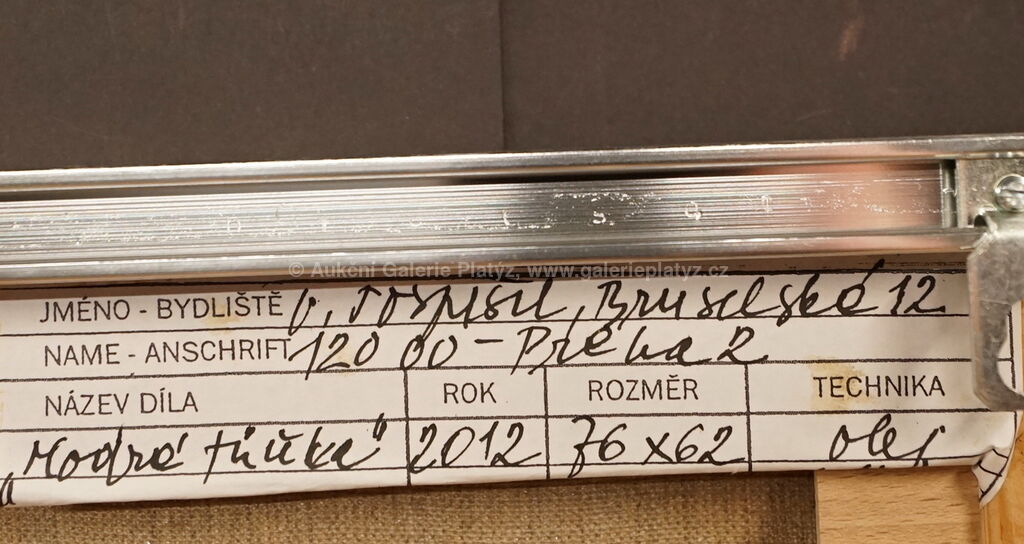 © Aukční Galerie Platýz, www.galerieplatyz.cz
JMÉNO - BYDLIŠTĚ V. Pospíšil, Bruselská 12
NAME - ANSCHRIFT 120 00 - Praha 2
NÁZEV DÍLA ROK ROZMĚR TECHNIKA
„Modrá 2012 76 x 62 olej